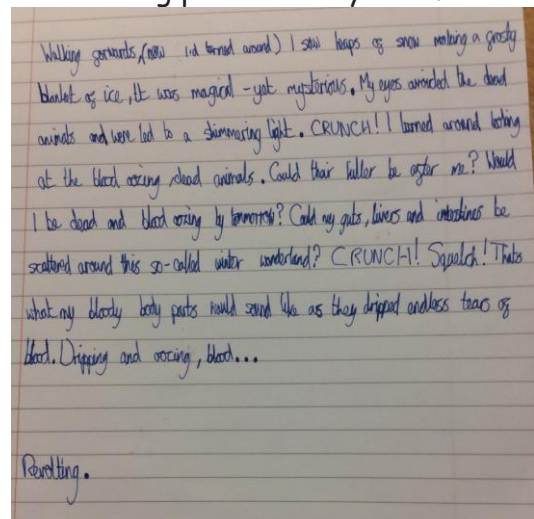 Walking forwards, (now i'd turned around) I saw heaps of snow making a frosty
blanket of ice, It was magical - yet mysterious. My eyes avoided the dead
animals and were led to a shimmering light. CRUNCH! I turned around looking
at the blood oozing, dead animals. Could their killer be after me? Would
I be dead and blood oozing by tommorrow? Could my guts, livers and intestines be
scattered around this so-called winter wonderland? CRUNCH! Squelch! Thats
what my bloody body parts would sound like as they dripped endless tears of
blood. Dripping and oozing, blood...
Revolting.